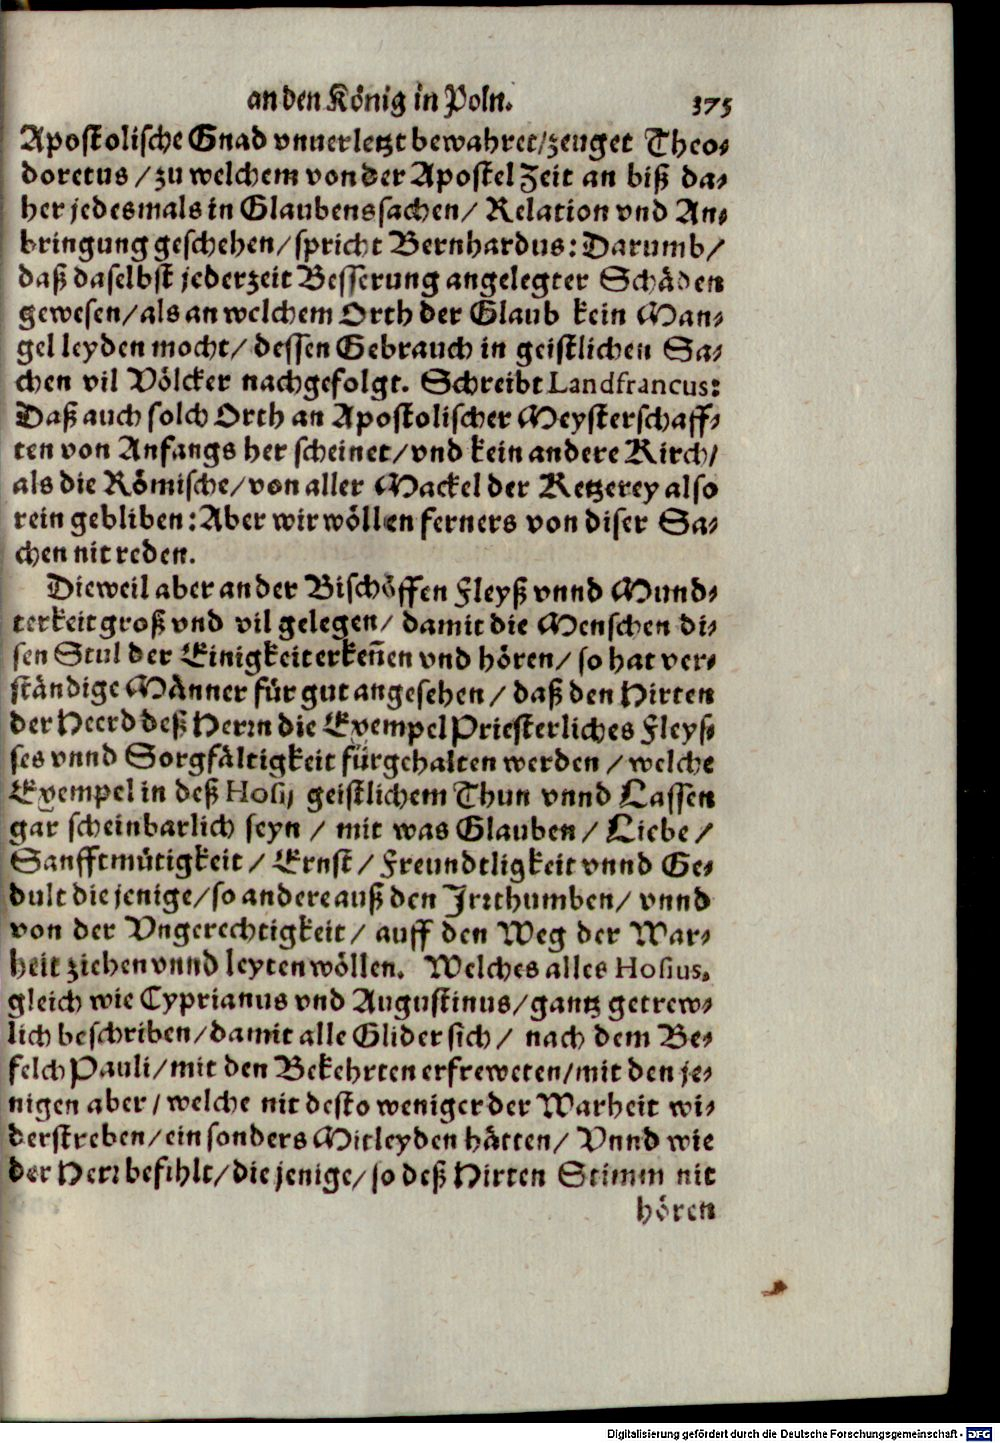 an den König in Poln. 375
Apostolische Gnad vnuerletzt bewahret/zeuget Theo-
doretus / zu welchem von der Apostel Zeit an biß da-
her jedesmals in Glaubenssachen/ Relation vnd An-
bringung geschehen/ spricht Bernhardus: Darumb/
daß daselbst jederzeit Besserung angelegter Schäden
gewesen/als an welchem Orth der Glaub kein Man-
gel leyden mocht/ dessen Gebrauch in geistlichen Sa-
chen vil Völcker nachgefolgt. Schreibt Landfrancus:
Daß auch solch Orth an Apostolischer Meysterschaff-
ten von Anfangs her scheinet/vnd kein andere Kirch/
als die Römische/von aller Mackel der Ketzerey also
rein gebliben: Aber wir wöllen ferners von diser Sa-
chen nit reden.
Dieweil aber an der Bischöffen Fleyß vnnd Mund-
terkeit groß vnd vil gelegen/ damit die Menschen di-
sen Stul der Einigkeit erkeñen vnd hören/ so hat ver-
ständige Männer für gut angesehen / daß den Hirten
der Heerd deß Herrn die Exempel Priesterliches Fleys-
ses vnnd Sorgfältigkeit fürgehalten werden / welche
Exempel in deß Hosij geistlichem Thun vnnd Lassen
gar scheinbarlich seyn / mit was Glauben / Liebe /
Sanfftmütigkeit / Ernst / Freundtligkeit vnnd Ge-
dult die jenige/so andere auß den Irrthumben/ vnnd
von der Vngerechtigkeit/ auff den Weg der War-
heit ziehen vnnd leyten wöllen. Welches alles Hosius.
gleich wie Cyprianus vnd Augustinus/gantz getrew-
lich beschriben/damit alle Glider sich/ nach dem Be-
felch Pauli/mit den Bekehrten erfreweten/mit den je-
nigen aber/welche nit desto weniger der Warheit wi-
derstreben/ein sonders Mitleyden hätten/ Vnnd wie
der Herr befihlt/die jenige/so deß Hirten Stimm nit
hören
Digitalisierung gefördert durch die Deutsche Forschungsgemeinschaft - DFG